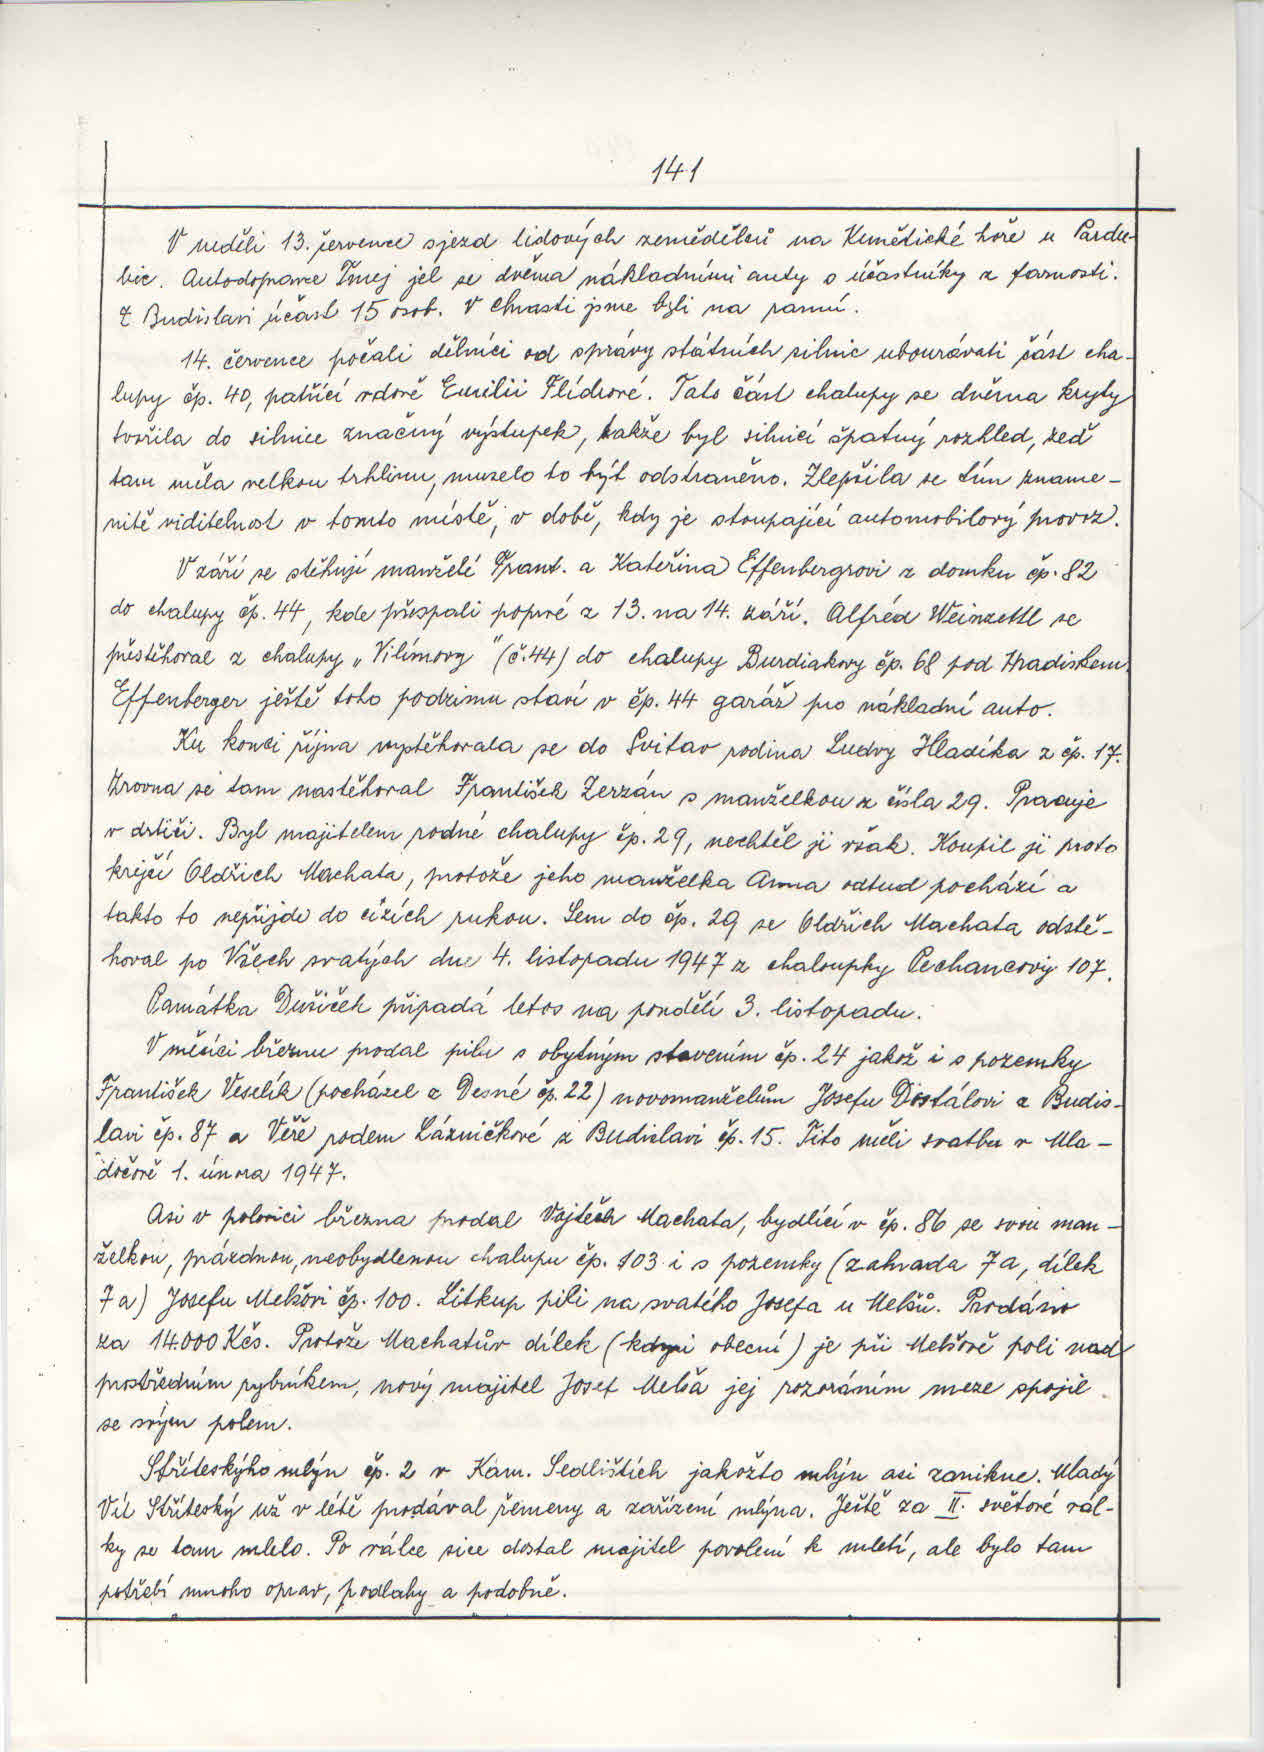 141
V neděli 13. července sjezd lidových zemědělců na Kunětické hoře u Pardu-
bic. Autodopravce Tmej jel se dvěma nákladními auty s účastníky z farnosti.
Z Budislavi účast 15 osob. V Chrasti jsme byli na ranní.
14. července počali dělníci od správy státních silnic ubourávati část cha-
lupy čp. 40, patřící vdově Emilii Flídrové. Tato část chalupy se dvěma kryty
tvořila do silnice značný výstupek, takže byl silnicí špatný rozhled, zeď
tam měla velkou trhlinu, muselo to být odstraněno. Zlepšila se tím zname-
nitě viditelnost v tomto místě, v době, kdy je stoupající automobilový provoz.
V září se stěhují manželé Frant. a Kateřina Effenbergrovi z domku čp. 82
do chalupy čp. 44, kde přespali poprvé z 13. na 14. září. Alfréd Weinzettl se
přestěhoval z chalupy „Vilímovy" (č. 44) do chalupy Burdiakovy čp. 68 pod Hradiskem.
Effenberger ještě toho podzimu staví v čp. 44 garáž pro nákladní auto.
Ku konci října vystěhovala se do Svitav rodina Ludvy Hladíka z čp. 17.
Zrovna se tam nastěhoval František Zerzán s manželkou z čísla 29. Pracuje
v drtiči. Byl majitelem rodné chalupy čp. 29, nechtěl ji však. Koupil ji proto
krejčí Oldřich Machata, protože jeho manželka Anna odtud pochází a
takto to nepřijde do cizích rukou. Sem do čp. 29 se Oldřich Machata odstě-
hoval po Všech svatých dne 4. listopadu 1947 z chaloupky Pechancovy 107.
Památka Dušiček připadá letos na pondělí 3. listopadu.
V měsíci březnu prodal pilu s obytným stavením čp. 24 jakož i s pozemky
František Veselík (pocházel z Desné čp. 22) novomanželům Josefu Dostálovi z Budis-
lavi čp. 87 a Věře rodem Lázničkové z Budislavi čp. 15. Tito měli svatbu v Mla-
dočově 1. února 1947.
Asi v polovici března prodal Vojtěch Machata, bydlící v čp. 86 se svou man-
želkou, prázdnou, neobydlenou chalupu čp. 103 i s pozemky (zahrada 7a, dílek
7a) Josefu Melšovi čp. 100. Litkup pili na svatého Josefa u Melšů. Prodáno
za 14.000 Kčs. Protože Machatův dílek (kdysi obecní) je při Melšově poli nad
prostředním rybníkem, nový majitel Josef Melša jej rozoráním meze spojil
se svým polem.
Stříteskýho mlýn čp. 2 v Kam. Sedlištích jakožto mlýn asi zanikne. Mladý
Víl Stříteský už v létě prodával řemeny a zařízení mlýna. Ještě za II. světové vál-
ky se tam mlelo. Po válce sice dostal majitel povolení k mletí, ale bylo tam
potřebí mnoho oprav, podlahy a podobně.